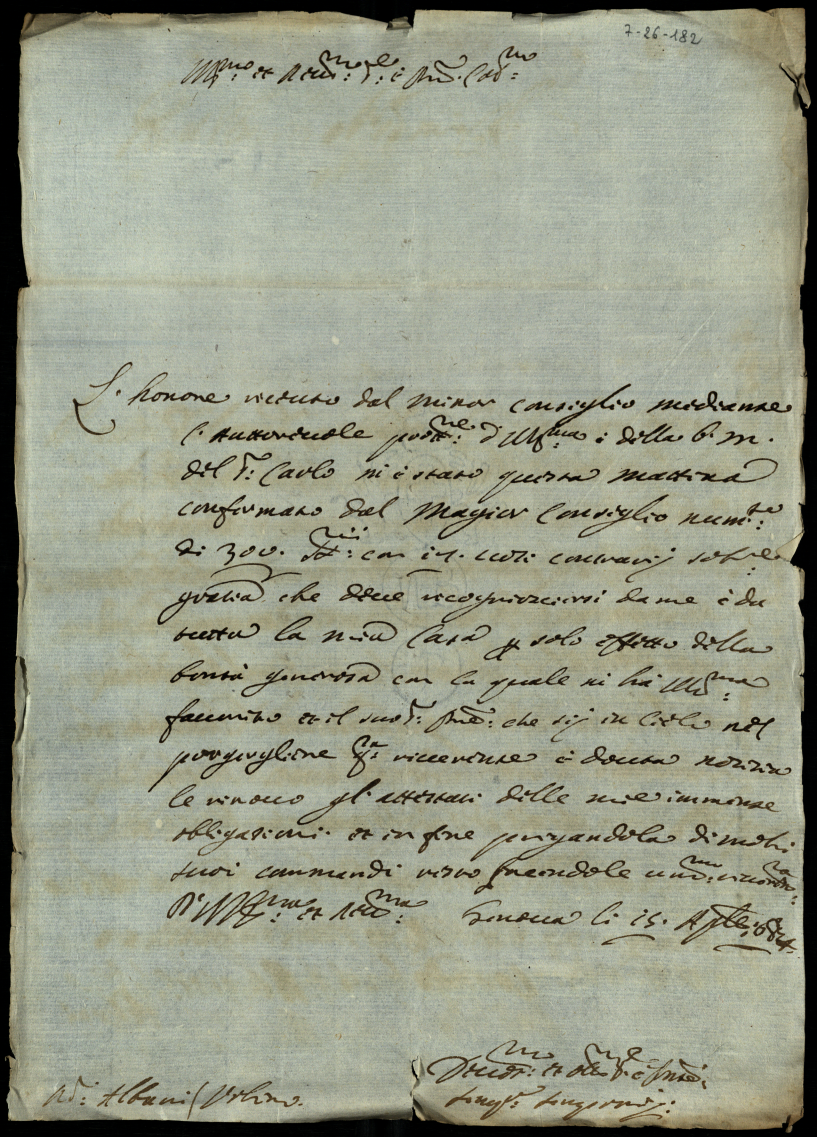 7-26-182
Ill.mo et Rev.mo S.r e Pad.
L'honore riceuto dal Minor Consiglio mediante
l'auttorevole prott.ne d' V S Ill.ma e della b. m.
del S.r Carlo mi è stato questa mattina
confermato dal Magior Consiglio num.to
di 300. con voti contrarij
gratia che deve ricognoscersi da me è da
tutta la mia Casa p solo effetto della
bontà generosa con la quale mi hà V S Ill.ma
favorito et il suo S.r che sij in Cielo nel
porgergliene q.ta riverente è douta notizia
le rinovo gl'attestati delle mie immense
obligationi et in fine pregandola di molti
suoi commandi resto facendole
D V S Ill.ma et Rev.ma Genova li 15. Aple 1684
Devot.mo et
Ab. Albani / Urbino.